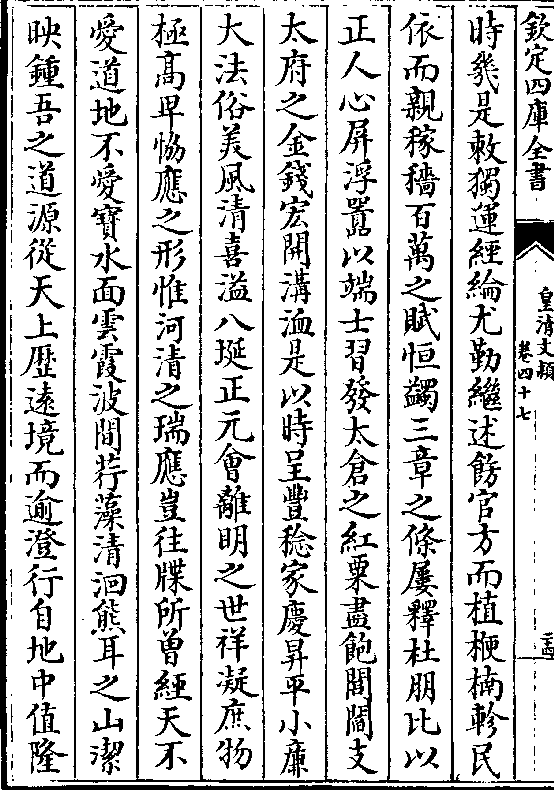 欽定四庫全書
皇清文穎
卷四十七
時幾是敕獨運經綸尤勤繼述飭官方而植楩楠軫民
依而親稼穡百萬之賦恒蠲三章之條屢釋杜朋比以
正人心屏浮囂以端士習發太倉之紅粟盡飽閭閻支
太府之金錢宏開溝洫是以時呈豐稔家慶昇平小廉
大法俗美風清喜溢八埏正元會離明之世祥凝庶物
極高卑恊應之形惟河清之瑞應豈往牒所曾經天不
愛道地不愛寶水面雲霞波間荇藻清洄熊耳之山潔
映鍾吾之道源從天上歴遠境而逾澄行自地中值隆